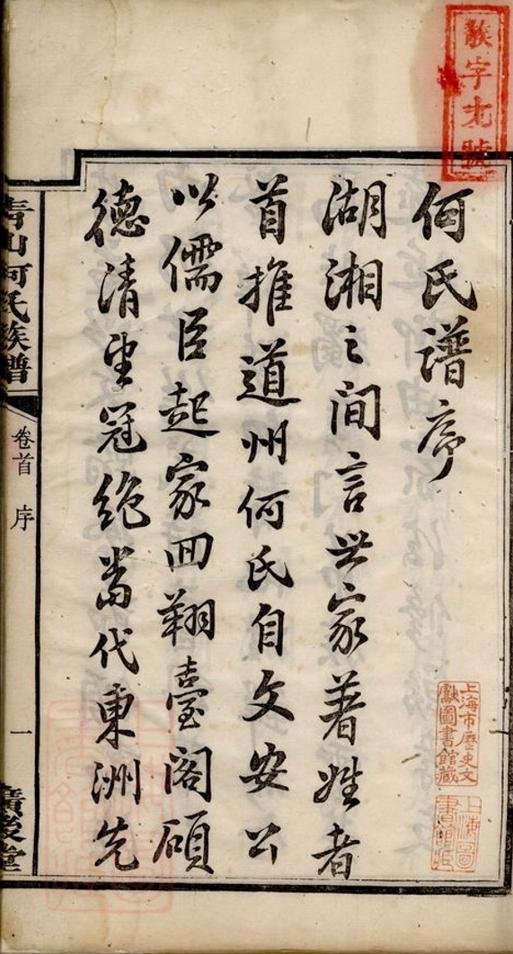 何氏譜序
湖湘之間言世家著姓者
首推道州何氏自文安公
以儒臣起家回翔臺閣碩
德清望冠絶當代東洲先
青山何氏族譜
卷首 序
一
廣後堂
散字九號
上海市歷史文
獻圖書館藏
上海圖
書館藏